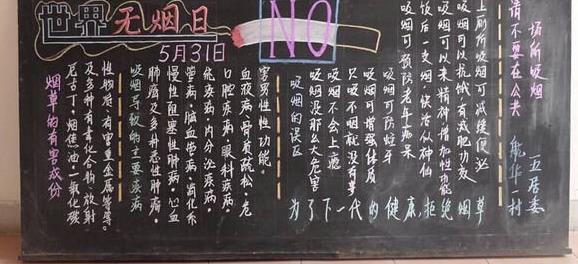 世界无烟日
5月31日
NO
请不要在公共
场所吸烟
航华一村
五居委
上厕所吸烟可减缓便泌
吸烟可以抗饿，有减肥功效
吸烟可以来精神增加性功能
饭后一支烟，快活似神仙
吸烟可预防老年病呆
吸烟可防蛀牙
吸烟可增强体质
只吸不咽就没有事
吸烟不会上瘾
吸烟没那么大危害
吸烟的误区
为了下一代的健康，拒绝烟草
害男性性功能。
血液病，骨质疏松，危
口腔疾病，眼科疾病，
免疫病，内分泌疾病，
管病，脑血带病，消化系
慢性阻塞性肺病，心血
肺癌及多种恶性肿瘤，
吸烟导致的主要疾病
性物质、有害重金属等等。
及多种有毒化合物、放射
尼古丁、烟焦油、一氧化碳
烟草的有害成份